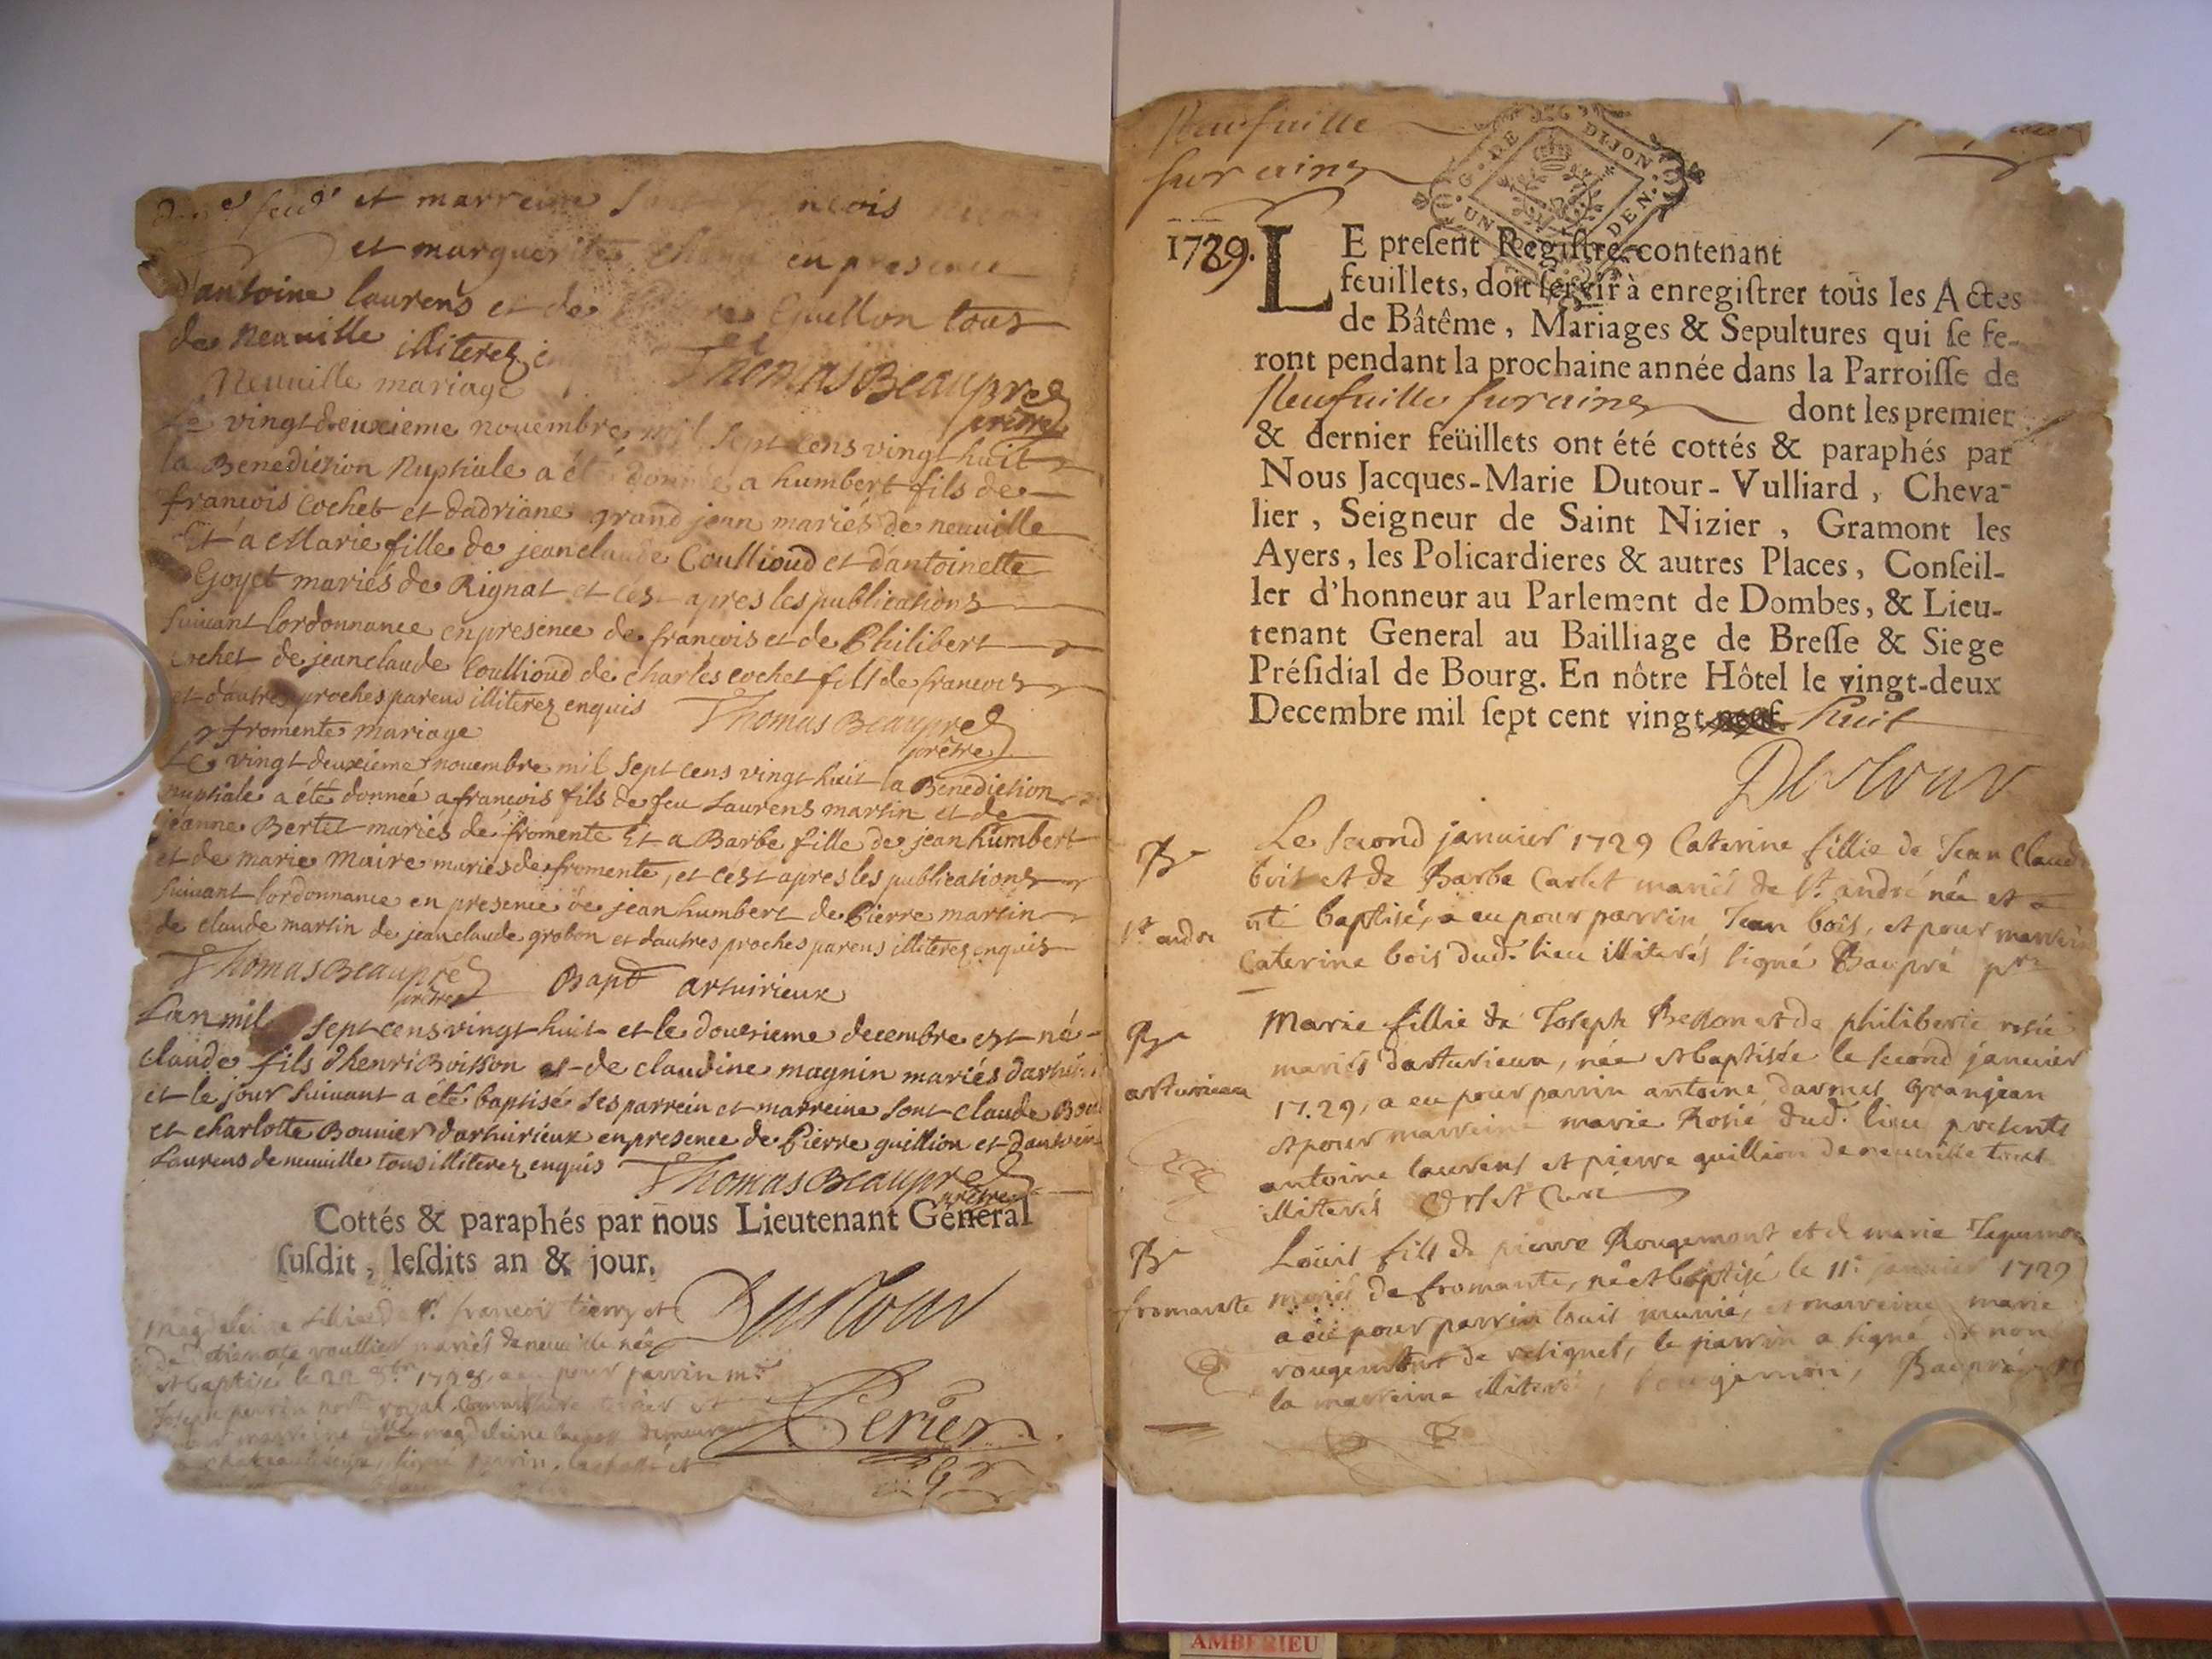 et marreine
et marguerite en presence
d'antoine laurens et de Guillon tous
de Neuville illiterez
Thomas Beaupre
prêtre
Neuville mariage
Le vingt deuxieme nouembre mil sept cens vingt huit
la Benediction Nuptiale a été donnée a humbert fils de
francois cochet et dadriane grand jean mariés de neuuille
Et a Marie fille de jeanclaude Coullioud et d'antoinette
Goyet mariés de Rignat et c'est apres les publications
suiuant lordonnance en presence de francois et de Philibert
cochet de jeanclaude Coullioud de charles cochet fils de francois
et d'autres proches parens illiterez enquis Thomas Beaupre
prêtre
fromente mariage
Le vingt deuxieme nouembre mil sept cens vingt huit la Benediction
nuptiale a été donnée a francois fils de feu Laurens martin et de
jeanne Bertet mariés de fromente Et a Barbe fille de jean humbert
et de marie Maire mariés de fromente, et c'est apres les publications
suiuant lordonnance en presence de jean humbert de Pierre martin
de claude martin de jeanclaude grobon et d'autres proches parens illiterez enquis
Thomas Beaupre
prêtre
Bapt arturieux
Lan mil sept cens vingt huit et le douzieme decembre est né
claude fils d'henri Boisson et de claudine magnin mariés
et le jour suiuant a été baptisé ses parrein et marreine sont claude
et charlotte Bounier darturieux en presence de Pierre guillion et
Laurens de neuuille tous illiterez enquis Thomas Beaupre
prêtre
Cottés & paraphés par nous Lieutenant Général
susdit, lesdits an & jour.
Dutour
Magdeleine fillie de Sr. francois tierry et
de voullier mariés de neuuille née
et baptisé le 22 1728, a eu pour parrin
Joseph perrin royal
marreine magdeleine
signé
Perier
Neufuille
sur ains
G. DE DIJON
UN DEN.
1729. LE present Registre contenant
feuillets, doit servir à enregistrer tous les Actes
de Bâtême, Mariages & Sepultures qui se fe-
ront pendant la prochaine année dans la Parroisse de
Neufuille sur ains dont les premier
& dernier feüillets ont été cottés & paraphés par
Nous Jacques-Marie Dutour-Vulliard, Cheva-
lier, Seigneur de Saint Nizier, Gramont les
Ayers, les Policardieres & autres Places, Conseil-
ler d'honneur au Parlement de Dombes, & Lieu-
tenant General au Bailliage de Bresse & Siege
Présidial de Bourg. En nôtre Hôtel le vingt-deux
Decembre mil sept cent vingt neuf huit
Dutour
Le second januier 1729 Caterine fillie de Jean Claude
bois et de Barbe Carlet mariés de St. andré née et a
été baptisé, a eu pour parrin Jean bois, et pour marreine
Caterine bois dud. lieu illiterés signé Baupré
St. andré
Marie fillie de Joseph Bellon et de philiberte rosie
mariés darturieux, née et baptisée le second januier
1729, a eu pour parrin antoine darmet granjean
et pour marreine marie Rosie dud. lieu presents
antoine laurens et pierre guillion de neuuille tous
illiterés Orset Curé
arturieux
Louis fils de pierre Rougemont et de marie
mariés de fromante, né et baptisé le 11e januier 1729
a eu pour parrin louis munié, et marreine marie
rougemont de resignel, le parrin a signé et non
la marreine illiterée, Baupré
fromante
AMBERIEU